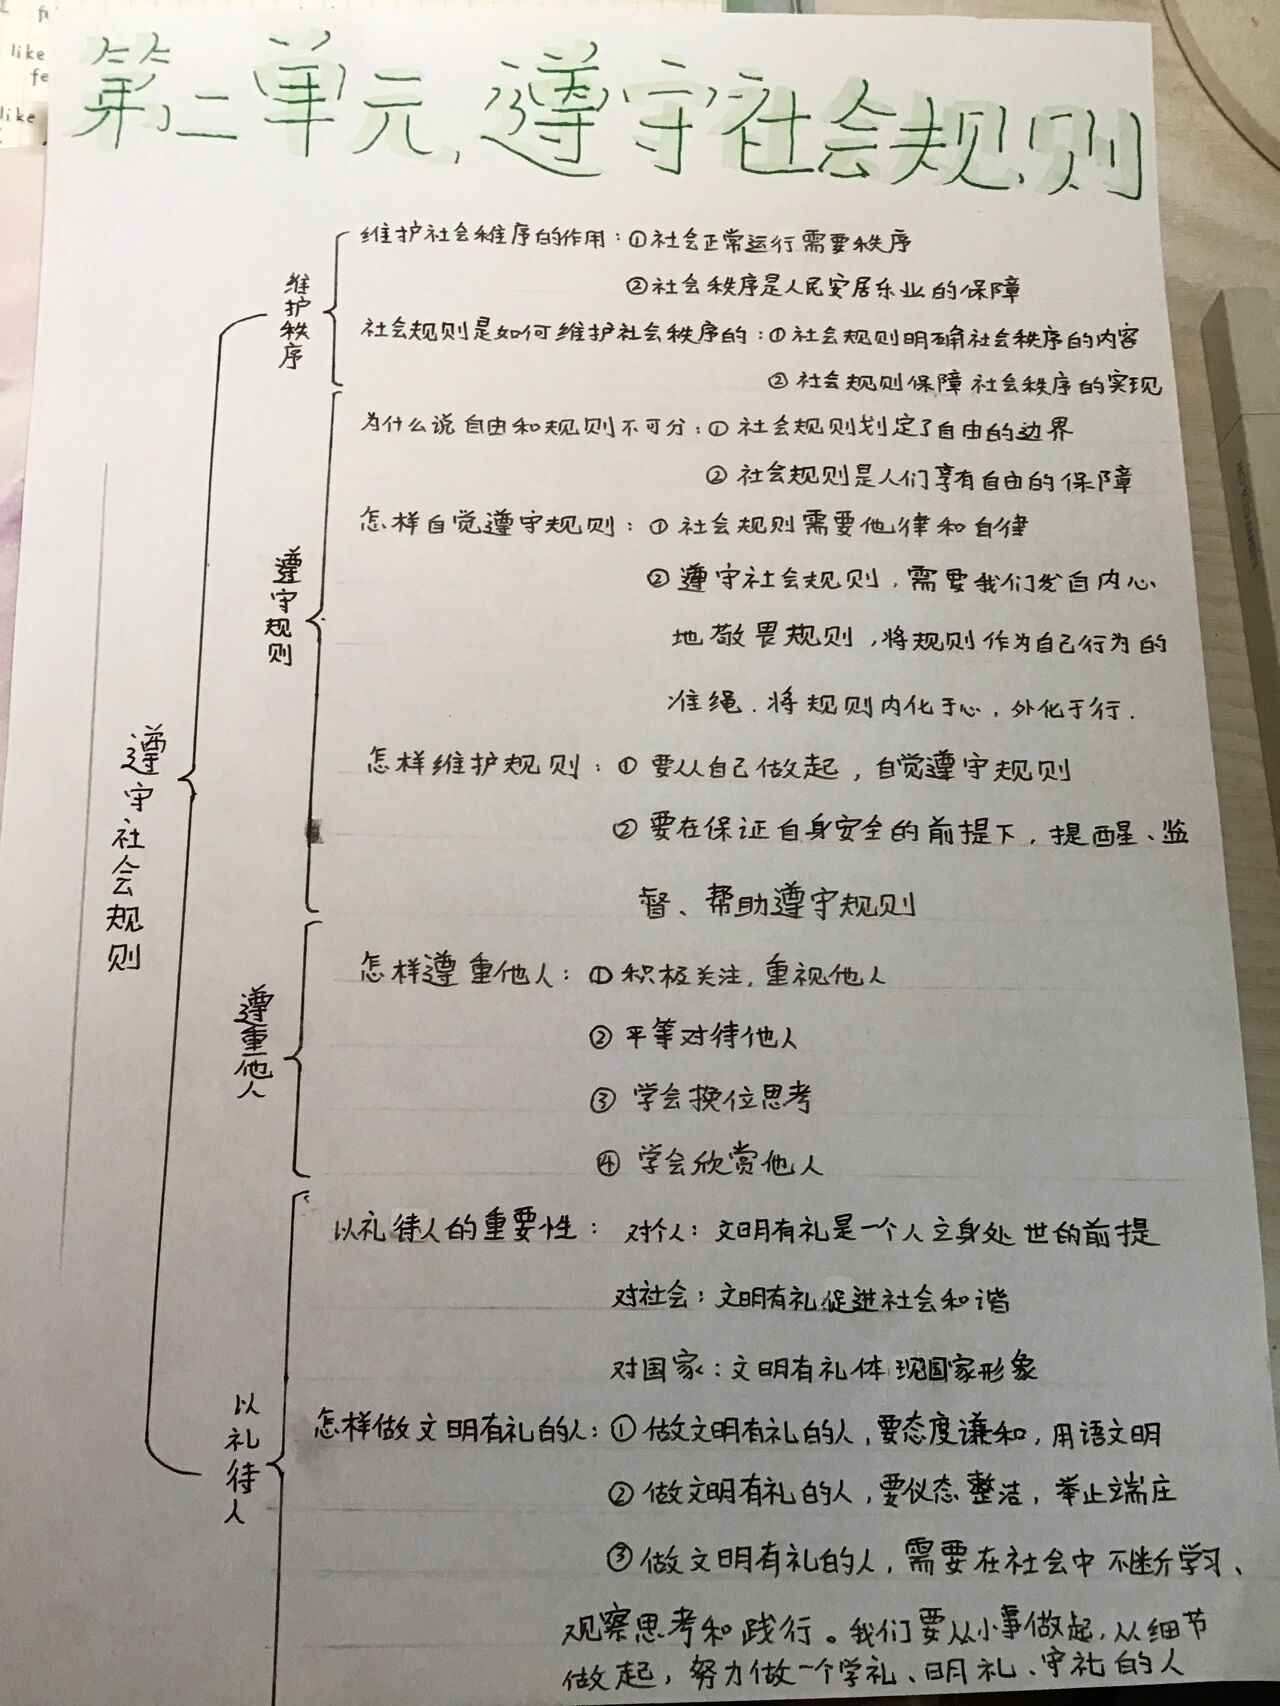 like
fe
like
第二单元,遵守社会规则
遵守社会规则
维护秩序
维护社会维序的作用：①社会正常运行需要秩序
②社会秩序是人民安居乐业的保障
社会规则是如何维护社会秩序的：①社会规则明确社会秩序的内容
②社会规则保障社会秩序的实现
遵守规则
为什么说自由和规则不可分：①社会规则划定了自由的边界
②社会规则是人们享有自由的保障
怎样自觉遵守规则：①社会规则需要他律和自律
②遵守社会规则，需要我们发自内心
地敬畏规则，将规则作为自己行为的
准绳.将规则内化于心，外化于行.
怎样维护规则：①要从自己做起，自觉遵守规则
②要在保证自身安全的前提下，提醒、监
督、帮助遵守规则
遵重他人
怎样遵重他人：①积极关注，重视他人
②平等对待他人
③学会换位思考
④学会欣赏他人
以礼待人
以礼待人的重要性：对个人：文明有礼是一个人立身处世的前提
对社会：文明有礼促进社会和谐
对国家：文明有礼体现国家形象
怎样做文明有礼的人：①做文明有礼的人，要态度谦和，用语文明
②做文明有礼的人，要仪态整洁，举止端庄
③做文明有礼的人，需要在社会中不断学习、
观察思考和践行。我们要从小事做起，从细节
做起，努力做一个学礼、明礼、守礼的人